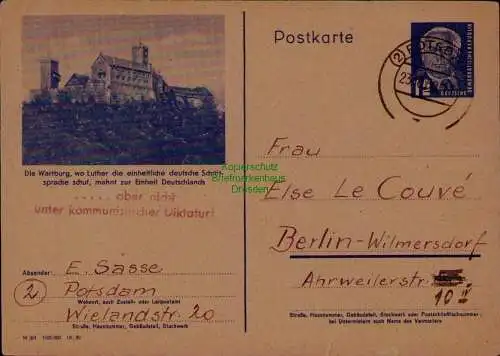 Postkarte
(2) POTSD
23.
12
DEUTSCHE
DEMOKRATISCHE REPUBLIK
Die Wartburg, wo Luther die einheitliche deutsche Schrift-
sprache schuf, mahnt zur Einheit Deutschlands
..... aber nicht
unter kommunistischer Diktatur!
Kopierschutz
Briefmarkenhaus
Dresden
Frau
Else Le Couvé
Berlin-Wilmersdorf
Ahrweilerstr.
10 IV
Absender: E. Sasse
(2) Potsdam
Wohnort, auch Zustell- oder Leitpostamt
Wielandstr. 20
Straße, Hausnummer, Gebäudeteil, Stockwerk
Straße, Hausnummer, Gebäudeteil, Stockwerk oder Postschließfachnummer;
bei Untermietern auch Name des Vermieters